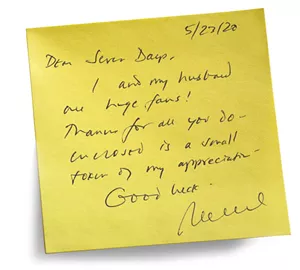 5/27/20
Dear Seven Days,
I and my husband
are huge fans!
Thanks for all you do -
enclosed is a small
token of my appreciation -
Good luck.